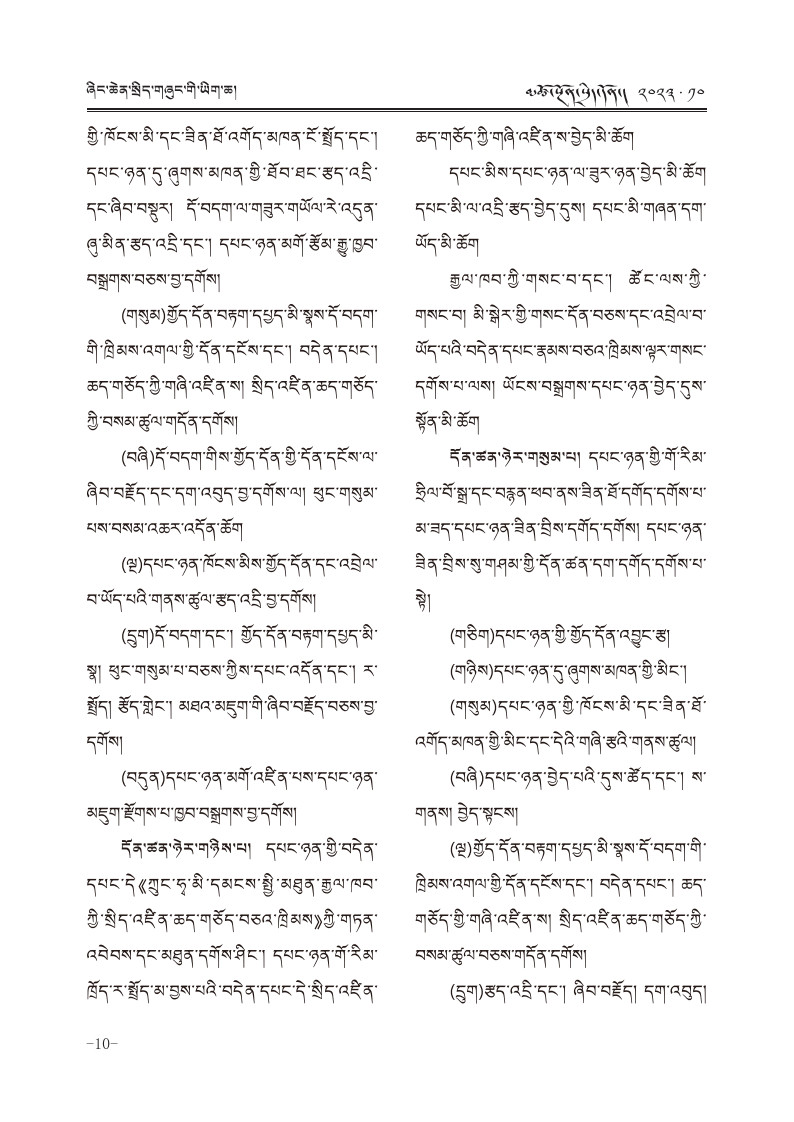 ཞིང་ཆེན་སྲིད་གཞུང་གི་ཡིག་ཆ།
༢༠༢༣ · ༡༠
གྱི་ཁོངས་མི་དང་ཟིན་ཐོ་འགོད་མཁན་ངོ་སྤྲོད་དང་།
དཔང་ཉན་དུ་ཞུགས་མཁན་གྱི་ཐོབ་ཐང་རྩད་འདྲི་
དང་ཞིབ་བསྡུར། དོ་བདག་ལ་གཟུར་གཡོལ་རེ་འདུན་
ཞུ་མིན་རྩད་འདྲི་དང་། དཔང་ཉན་མགོ་རྩོམ་རྒྱུ་ཁྱབ་
བསྒྲགས་བཅས་བྱ་དགོས།
(གསུམ)གྱོད་དོན་བརྟག་དཔྱད་མི་སྣས་དོ་བདག་
གི་ཁྲིམས་འགལ་གྱི་དོན་དངོས་དང་། བདེན་དཔང་།
ཆད་གཅོད་ཀྱི་གཞི་འཛིན་ས། སྲིད་འཛིན་ཆད་གཅོད་
ཀྱི་བསམ་ཚུལ་གདོན་དགོས།
(བཞི)དོ་བདག་གིས་གྱོད་དོན་གྱི་དོན་དངོས་ལ་
ཞིབ་བརྗོད་དང་དག་འབུད་བྱ་དགོས་ལ། ཕུང་གསུམ་
པས་བསམ་འཆར་འདོན་ཆོག
(ལྔ)དཔང་ཉན་ཁོངས་མིས་གྱོད་དོན་དང་འབྲེལ་
བ་ཡོད་པའི་གནས་ཚུལ་རྩད་འདྲི་བྱ་དགོས།
(དྲུག)དོ་བདག་དང་། གྱོད་དོན་བརྟག་དཔྱད་མི་
སྣ། ཕུང་གསུམ་པ་བཅས་ཀྱིས་དཔང་འདོན་དང་། ར་
སྤྲོད། རྩོད་གླེང་། མཐའ་མཇུག་གི་ཞིབ་བརྗོད་བཅས་བྱ་
དགོས།
(བདུན)དཔང་ཉན་མགོ་འཛིན་པས་དཔང་ཉན་
མཇུག་རྫོགས་པ་ཁྱབ་བསྒྲགས་བྱ་དགོས།
དོན་ཚན་ཉེར་གཉིས་པ། དཔང་ཉན་གྱི་བདེན་
དཔང་དེ《ཀྲུང་ཧྭ་མི་དམངས་སྤྱི་མཐུན་རྒྱལ་ཁབ་
ཀྱི་སྲིད་འཛིན་ཆད་གཅོད་བཅའ་ཁྲིམས》ཀྱི་གཏན་
འབེབས་དང་མཐུན་དགོས་ཤིང་། དཔང་ཉན་གོ་རིམ་
ཁྲོད་ར་སྤྲོད་མ་བྱས་པའི་བདེན་དཔང་དེ་སྲིད་འཛིན་
ཆད་གཅོད་ཀྱི་གཞི་འཛིན་ས་བྱེད་མི་ཆོག
དཔང་མིས་དཔང་ཉན་ལ་ཟུར་ཉན་བྱེད་མི་ཆོག
དཔང་མི་ལ་འདྲི་རྩད་བྱེད་དུས། དཔང་མི་གཞན་དག་
ཡོད་མི་ཆོག
རྒྱལ་ཁབ་ཀྱི་གསང་བ་དང་། ཚོང་ལས་ཀྱི་
གསང་བ། མི་སྒེར་གྱི་གསང་དོན་བཅས་དང་འབྲེལ་བ་
ཡོད་པའི་བདེན་དཔང་རྣམས་བཅའ་ཁྲིམས་ལྟར་གསང་
དགོས་པ་ལས། ཡོངས་བསྒྲགས་དཔང་ཉན་བྱེད་དུས་
སྟོན་མི་ཆོག
དོན་ཚན་ཉེར་གསུམ་པ། དཔང་ཉན་གྱི་གོ་རིམ་
ཧྲིལ་བོ་སྒྲ་དང་བརྙན་ཕབ་ནས་ཟིན་ཐོ་དགོད་དགོས་པ་
མ་ཟད་དཔང་ཉན་ཟིན་བྲིས་དགོད་དགོས། དཔང་ཉན་
ཟིན་བྲིས་སུ་གཤམ་གྱི་དོན་ཚན་དག་དགོད་དགོས་པ་
སྟེ།
(གཅིག)དཔང་ཉན་གྱི་གྱོད་དོན་འབྱུང་རྩ།
(གཉིས)དཔང་ཉན་དུ་ཞུགས་མཁན་གྱི་མིང་།
(གསུམ)དཔང་ཉན་གྱི་ཁོངས་མི་དང་ཟིན་ཐོ་
འགོད་མཁན་གྱི་མིང་དང་དེའི་གཞི་རྩའི་གནས་ཚུལ།
(བཞི)དཔང་ཉན་བྱེད་པའི་དུས་ཚོད་དང་། ས་
གནས། བྱེད་སྟངས།
(ལྔ)གྱོད་དོན་བརྟག་དཔྱད་མི་སྣས་དོ་བདག་གི་
ཁྲིམས་འགལ་གྱི་དོན་དངོས་དང་། བདེན་དཔང་། ཆད་
གཅོད་གྱི་གཞི་འཛིན་ས། སྲིད་འཛིན་ཆད་གཅོད་ཀྱི་
བསམ་ཚུལ་བཅས་གདོན་དགོས།
(དྲུག)རྩད་འདྲི་དང་། ཞིབ་བརྗོད། དག་འབུད།
–10–